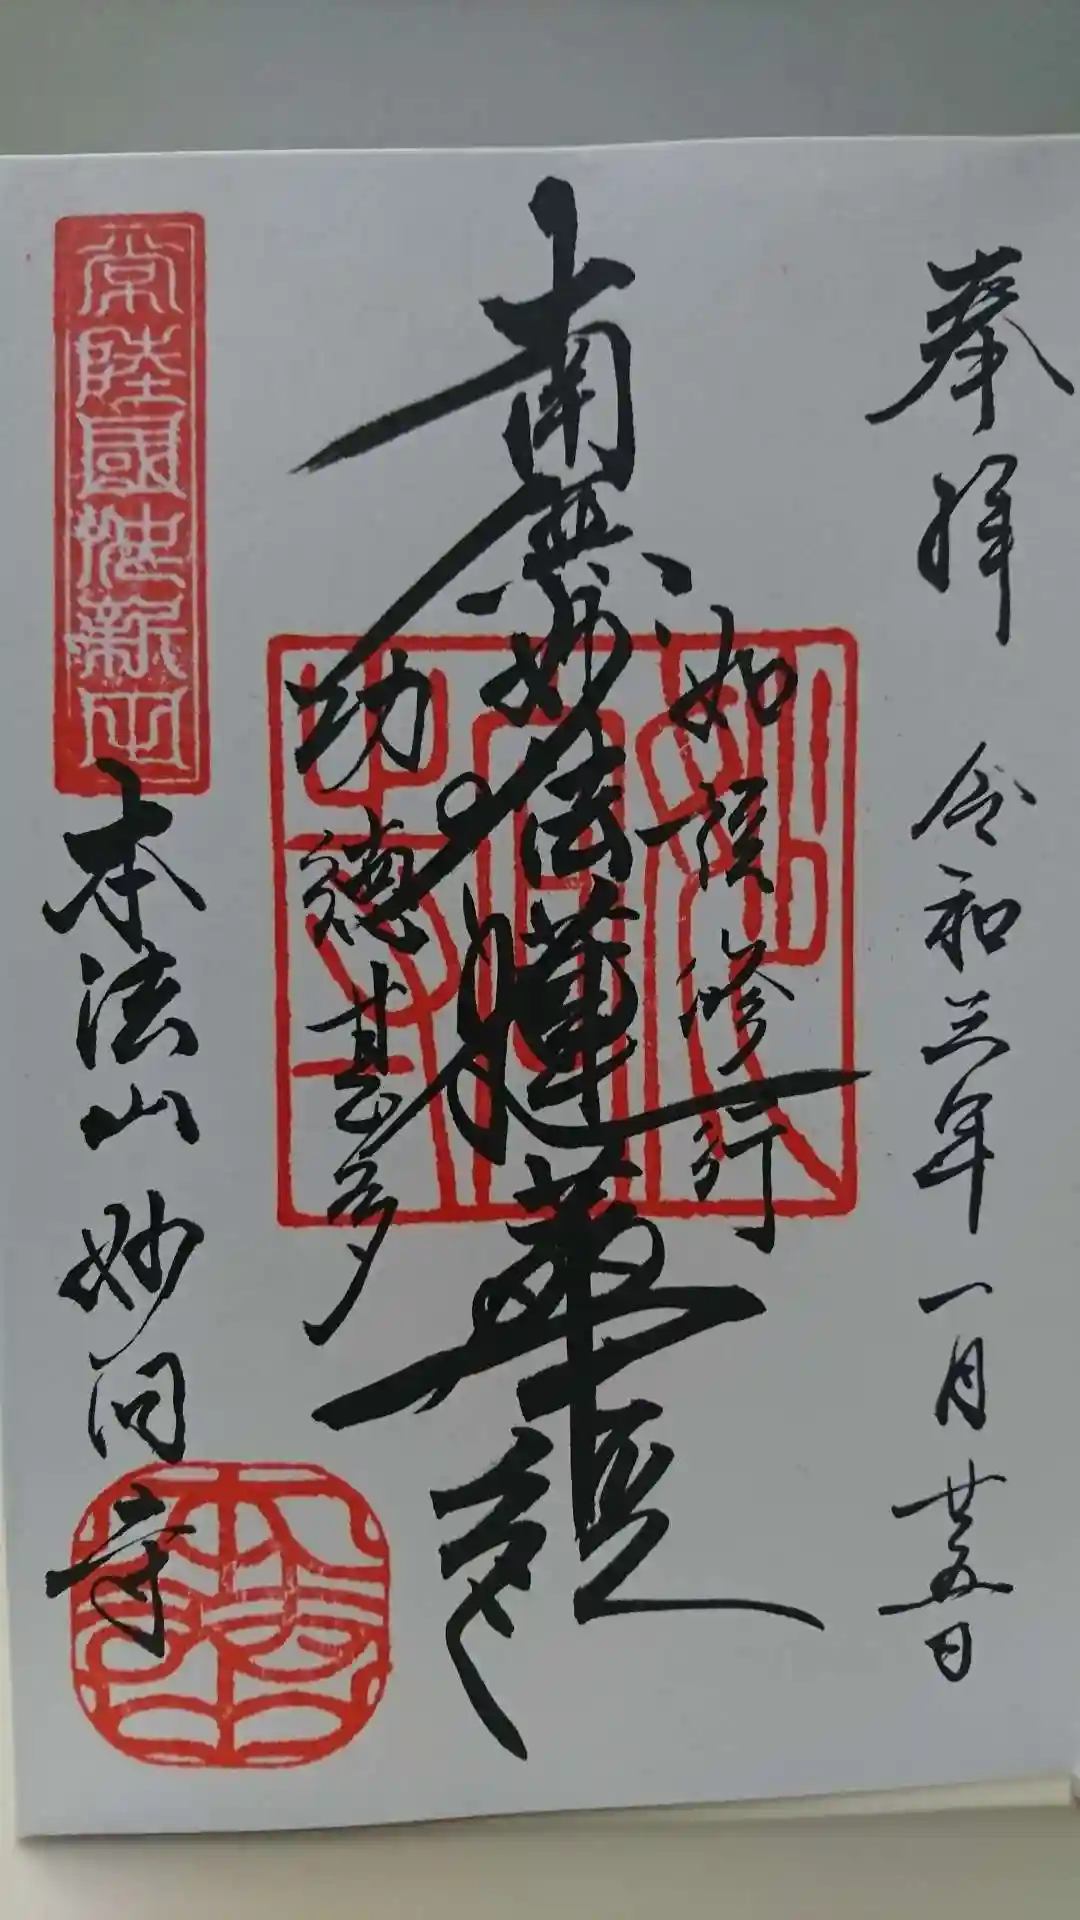 奉拝 令和三年 一月廿五日
如説修行
南無妙法蓮華経
功徳甚多
常陸國
本法山 妙同寺